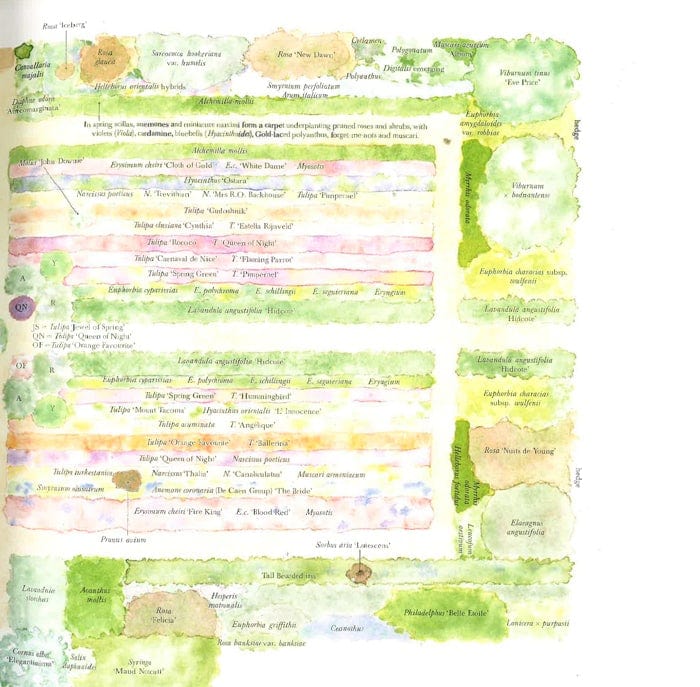 Rosa 'Iceberg'
Convallaria majalis
Rosa glauca
Sarcococca hookeriana var. humilis
Rosa 'New Dawn'
Cyclamen
Polygonatum
Muscari azureum 'Album'
Viburnum tinus 'Eve Price'
Helleborus orientalis hybrids
Smyrnium perfoliatum
Polyanthus
Digitalis emerging
Arum italicum
Daphne odora 'Aureomarginata'
Alchemilla mollis
Euphorbia amygdaloides var. robbiae
hedge
In spring scillas, anemones and miniature narcissi form a carpet underplanting pruned roses and shrubs, with
violets (Viola), cardamine, bluebells (Hyacinthoides), Gold-laced polyanthus, forget-me-nots and muscari.
Alchemilla mollis
Malus 'John Downie'
Erysimum cheiri 'Cloth of Gold' E.c. 'White Dame' Myosotis
Hyacinthus 'Ostara'
Myrrhis odorata
Viburnum × bodnantense
Narcissus poeticus N. 'Trevithian' N. 'Mrs R.O. Backhouse' Tulipa 'Pimpernel'
Tulipa 'Gudoshnik'
Tulipa clusiana 'Cynthia' T. 'Estella Rijnveld'
Tulipa 'Rococo' T. 'Queen of Night'
Tulipa 'Carnaval de Nice' T. 'Flaming Parrot'
Y
A
Tulipa 'Spring Green' T. 'Pimpernel'
Euphorbia characias subsp. wulfenii
Euphorbia cyparissias E. polychroma E. schillingii E. seguieriana Eryngium
QN
R
Lavandula angustifolia 'Hidcote'
Lavandula angustifolia 'Hidcote'
JS = Tulipa 'Jewel of Spring'
QN = Tulipa 'Queen of Night'
OF = Tulipa 'Orange Favourite'
OF
R
Lavandula angustifolia 'Hidcote'
Lavandula angustifolia 'Hidcote'
Euphorbia cyparissias E. polychroma E. schillingii E. seguieriana Eryngium
A
Y
Tulipa 'Spring Green' T. 'Hummingbird'
Euphorbia characias subsp. wulfenii
Tulipa 'Mount Tacoma' Hyacinthus orientalis 'L'Innocence'
Tulipa acuminata T. 'Angélique'
Tulipa 'Orange Favourite' T. 'Ballerina'
Rosa 'Nuits de Young'
Tulipa 'Queen of Night' Narcissus poeticus
Tulipa turkestanica Narcissus 'Thalia' N. 'Canaliculatus' Muscari armeniacum
Helleborus foetidus
Myrrhis odorata
hedge
Smyrnium olusatrum
Anemone coronaria (De Caen Group) 'The Bride'
Erysimum cheiri 'Fire King' E.c. 'Blood Red' Myosotis
Elaeagnus angustifolia
Leucojum aestivum
Prunus avium
Sorbus aria 'Lutescens'
Tall Bearded iris
Lavandula stoechas
Acanthus mollis
Hesperis matronalis
Rosa 'Felicia'
Philadelphus 'Belle Etoile'
Lonicera × purpusii
Euphorbia griffithii
Ceanothus
Rosa banksiae var. banksiae
Cornus alba 'Elegantissima'
Salix daphnoides
Syringa 'Maud Notcutt'